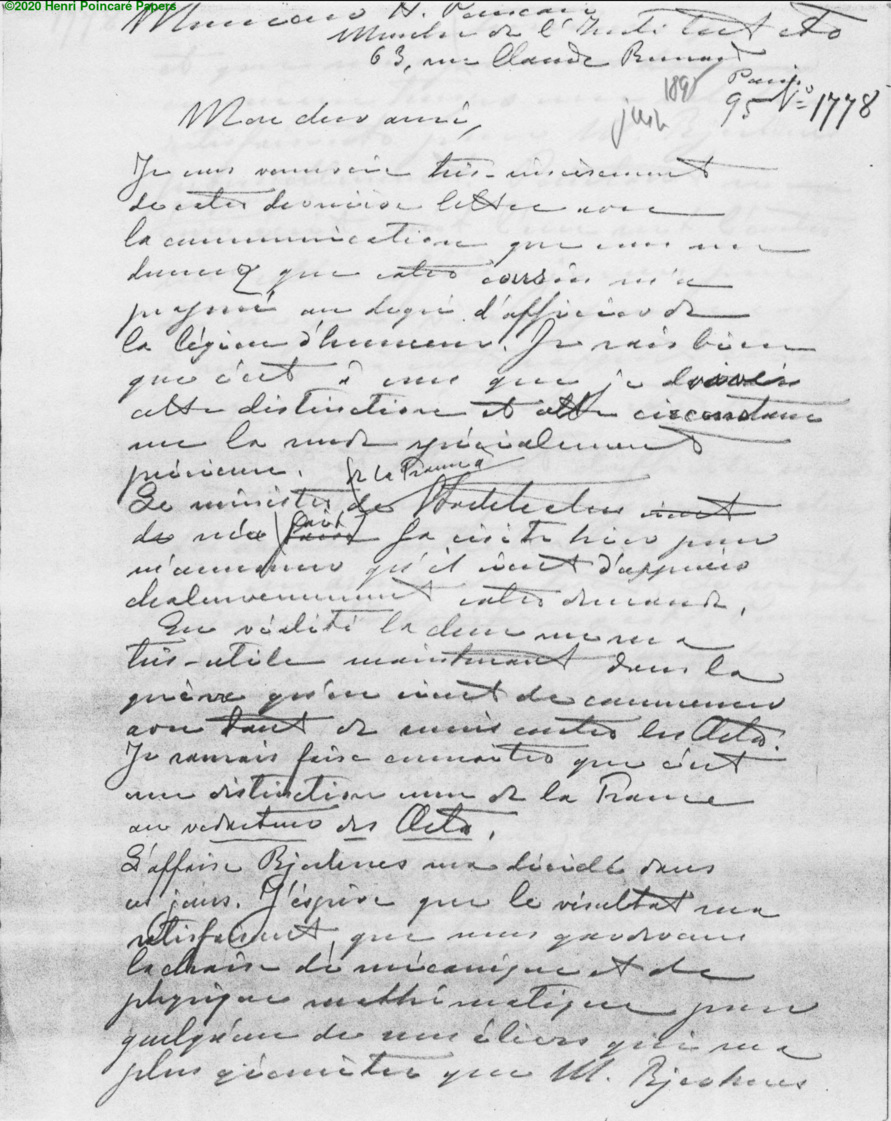 ©2020 Henri Poincaré Papers
Monsieur H. Poincaré
Membre de l'Institut etc
63, rue Claude Bernard
Paris
juin 1895
95 N° 1778
Mon cher ami,
Je vous remercie très-sincèrement
de votre dernière lettre avec
la communication que vous me
donnez que votre cousin m'a
proposé au degré d'officier de
la légion d'honneur. Je sais bien
que c'est à vous que je dois
cette distinction et cette circonstance
me la rend spécialement
précieuse.
de la France à
Le ministre de Stockholm vient
de me faire sa visite hier pour
m'annoncer qu'il vient d'appuyer
chaleureusement votre demande.
En vérité la chose me sera
très-utile maintenant dans la
guerre qu'on vient de commencer
avec tant de contre les Acta.
Je saurais faire connaître que c'est
une distinction de la France
au rédacteur des Acta.
L'affaire Bjerknes sera décidée dans
ces jours. J'espère que le résultat sera
satisfaisant, que nous garderons
la chaise de mécanique et de
physique mathématique pour
quelqu'un de nos élèves qui sera
plus géomètre que M. Bjerknes